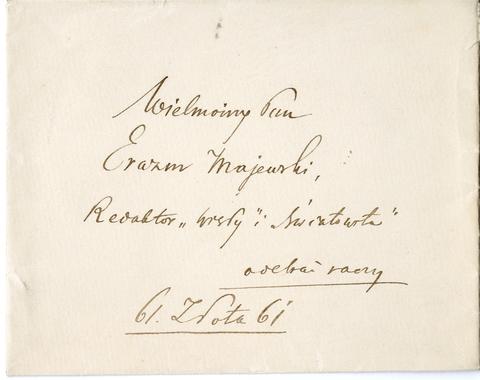 Wielmożny Pan
Erazm Majewski,
Redaktor „Wisły” i „Światowita”
odebrać raczy
61. Złota 61